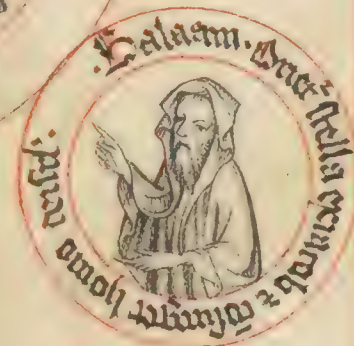 Balaam. Oriet᷒ stella ex iacob ⁊ ꝯsurget homo de isrł.